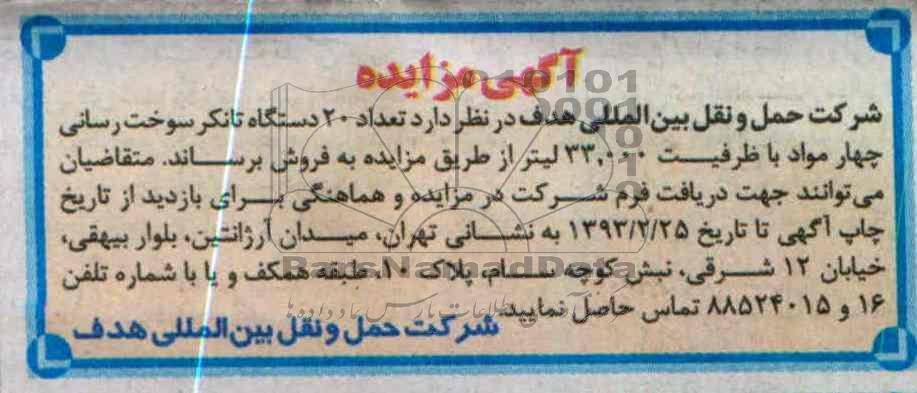 آگهی مزایده
شرکت حمل و نقل بین المللی هدف در نظر دارد تعداد ۲۰ دستگاه تانکر سوخت رسانی
چهار مواد با ظرفیت ۳۳,۰۰۰ لیتر از طریق مزایده به فروش برساند. متقاضیان
می‌توانند جهت دریافت فرم شرکت در مزایده و هماهنگی برای بازدید از تاریخ
چاپ آگهی تا تاریخ ۱۳۹۳/۲/۲۵ به نشانی تهران، میدان آرژانتین، بلوار بیهقی،
خیابان ۱۲ شرقی، نبش کوچه سام، پلاک ۱۰، طبقه همکف و یا با شماره تلفن
۱۶ و ۸۸۵۲۴۰۱۵ تماس حاصل نمایید.
شرکت حمل و نقل بین المللی هدف
ParsNamadData